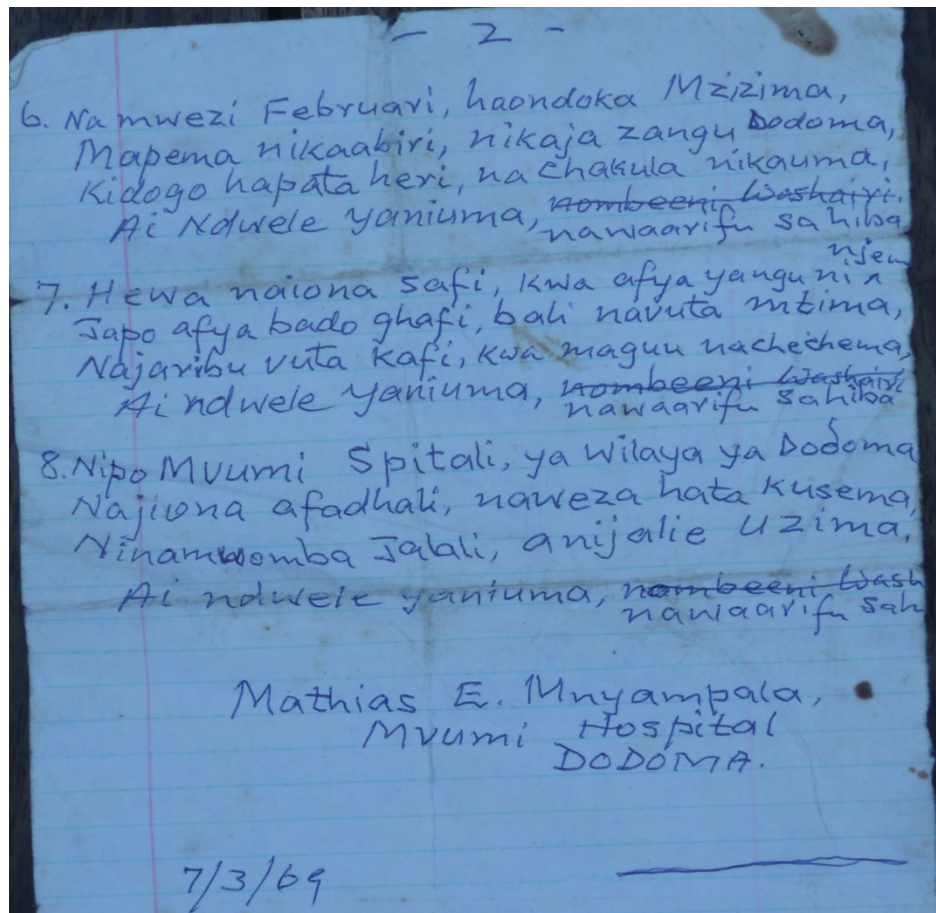 - 2 -
6. Na mwezi Februari, haondoka Mzizima,
Mapema nikaabiri, nikaja zangu Dodoma,
Kidogo hapata heri, na chakula nikauma,
Ai Ndwele yaniuma, nombeeni Washairi.
nawaarifu sahiba
7. Hewa naiona safi, kwa afya yangu ni ^ njem
Japo afya bado ghafi, bali navuta mzima,
Najaribu vuta kafi, kwa maguu nachechema,
Ai ndwele yaniuma, nombeeni Washairi
nawaarifu sahiba
8. Nipo Mvumi Spitali, ya Wilaya ya Dodoma
Najiona afadhali, naweza hata kusema,
Ninamwomba Jalali, anijalie Uzima.
Ai ndwele yaniuma, nombeeni Wash
nawaarifu Sah
Mathias E. Mnyampala,
Mvumi Hospital
DODOMA.
7/3/69